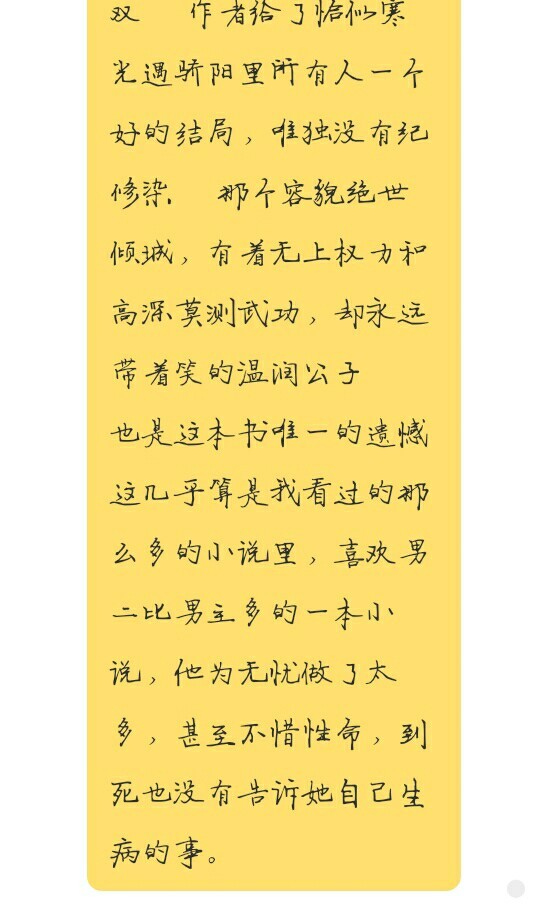 双 作者给了恰似寒
光遇骄阳里所有人一个
好的结局，唯独没有纪
修染. 那个容貌绝世
倾城，有着无上权力和
高深莫测武功，却永远
带着笑的温润公子
也是这本书唯一的遗憾
这几乎算是我看过的那
么多的小说里，喜欢男
二比男主多的一本小
说，他为无忧做了太
多，甚至不惜性命，到
死也没有告诉她自己生
病的事。